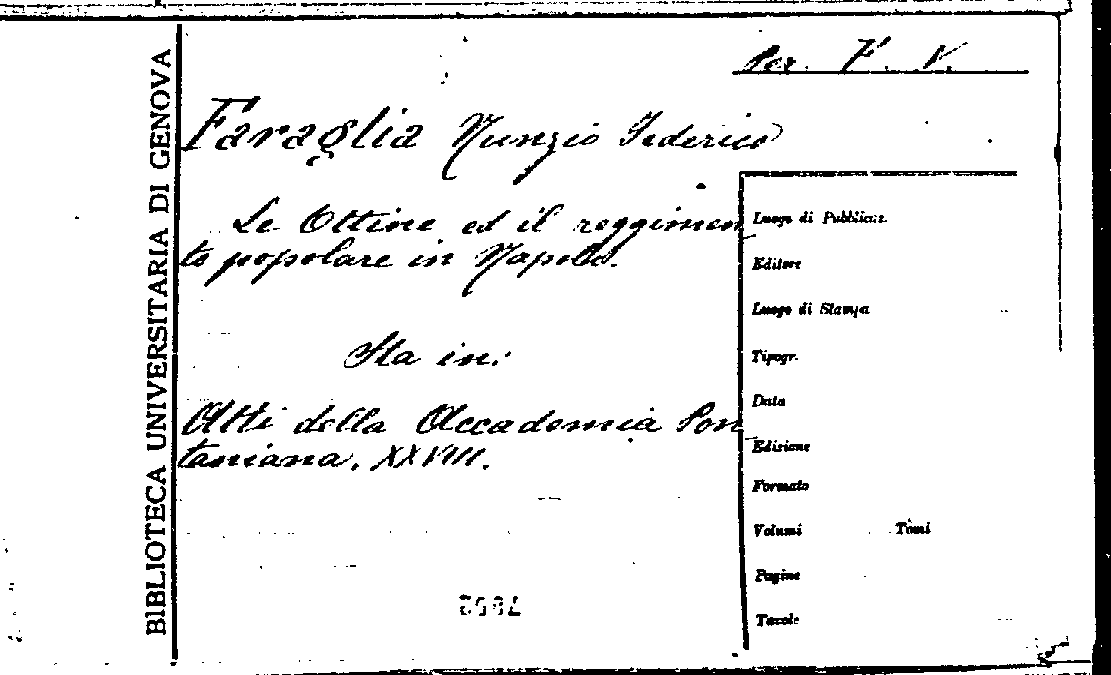 BIBLIOTECA UNIVERSITARIA DI GENOVA
Per. F. V.
Faraglia Nunzio Federico
Le Ottine ed il reggimen
to popolare in Napoli.
Sta in:
Atti della Accademia Pon
taniana, XXVIII.
Luogo di Pubblicaz.
Editore
Luogo di Stampa
Tipogr.
Data
Edizione
Formato
Volumi Tomi
Pagine
Tavole